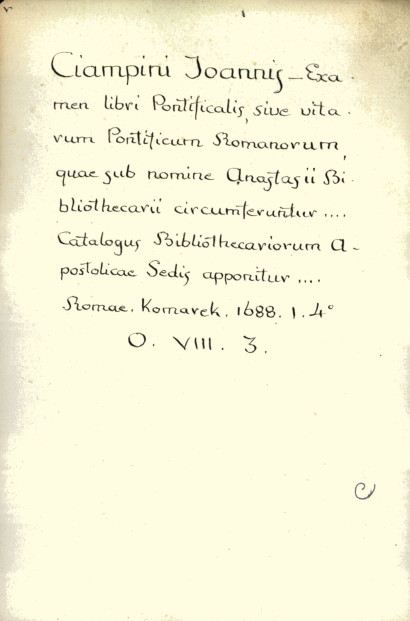 Ciampini Joannis – Exa-
men libri Pontificalis, sive vita-
rum Pontificum Romanorum,
quae sub nomine Anastasii Bi-
bliothecarii circumferuntur ....
Catalogus Bibliothecariorum A-
postolicae Sedis apponitur ....
Romae. Komarek. 1688. 1. 4°
O. VIII. 3.